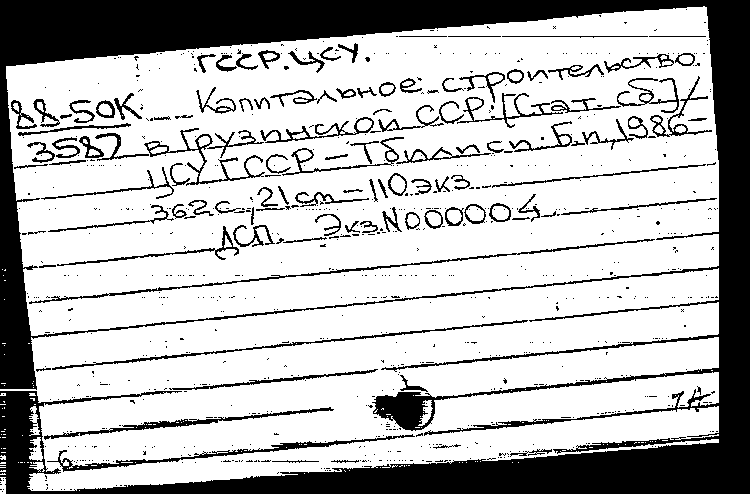 ГССР. ЦСУ.
88-50К Капитальное строительство
3587 в Грузинской ССР: [Стат. сб]/
ЦСУ ГССР - Тбилиси: Б.и., 1986-
362с., 21cm - 110экз
ДСП. Экз.N000004
1А
6